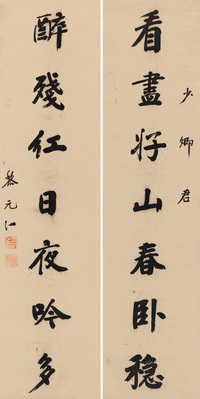 少卿君
看盡好山春臥穩
醉殘紅日夜吟多
黎元仁